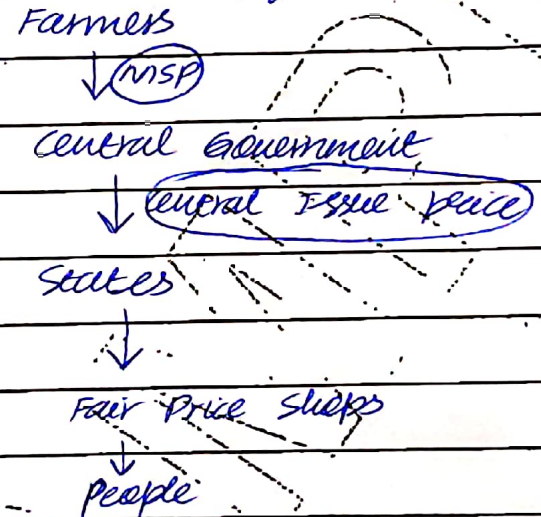 Farmers
↓ MSP
Central Government
↓ Central Issue price
States
↓
Fair Price Shops
↓
People